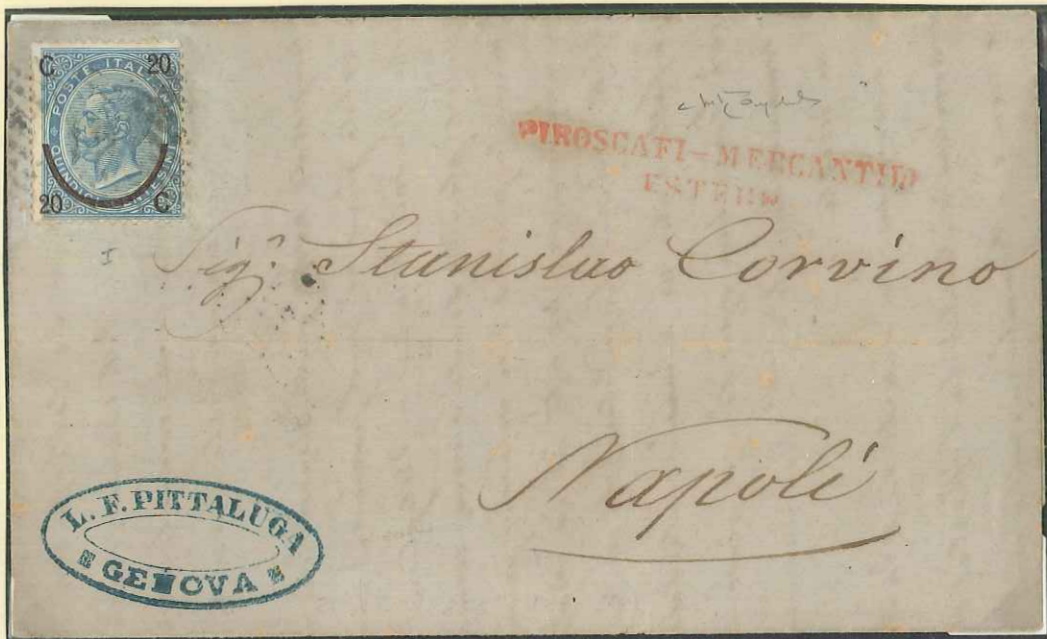 C 20
POSTE ITAL
QUINDICI CENTESIMI
20 C
PIROSCAFI-MERCANTILI
ESTERI
I
Sigr. Stanislao Corvino
Napoli
L. F. PITTALUGA
GENOVA